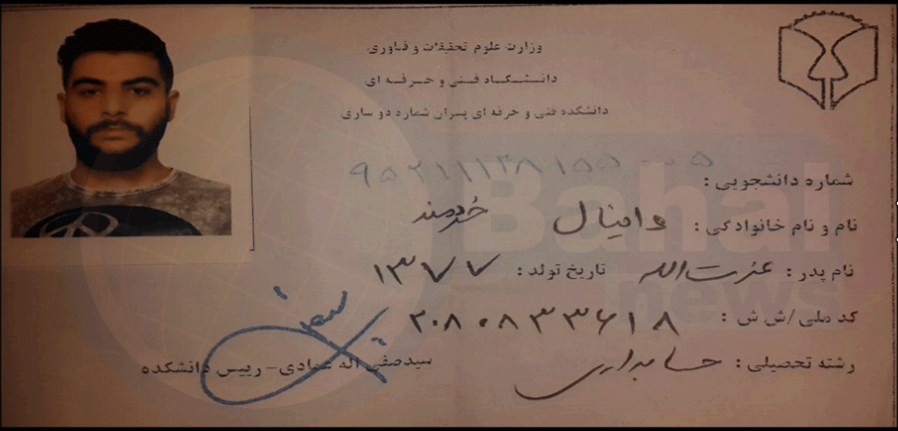 وزارت علوم تحقیقات و فناوری
دانشگاه فنی و حرفه ای
دانشکده فنی و حرفه ای پسران شماره دو ساری
شماره دانشجویی : ۹۵۲۱۱۱۳۸۱۵۵۰۰۵
نام و نام خانوادگی : دانیال خردمند
نام پدر : عزت الله تاریخ تولد : ۱۳۷۷
کد ملی/ش ش : ۲۰۸۰۸۳۳۶۱۸
رشته تحصیلی : حسابداری
سیدصفی اله عمادی- رییس دانشکده
Bahai
news